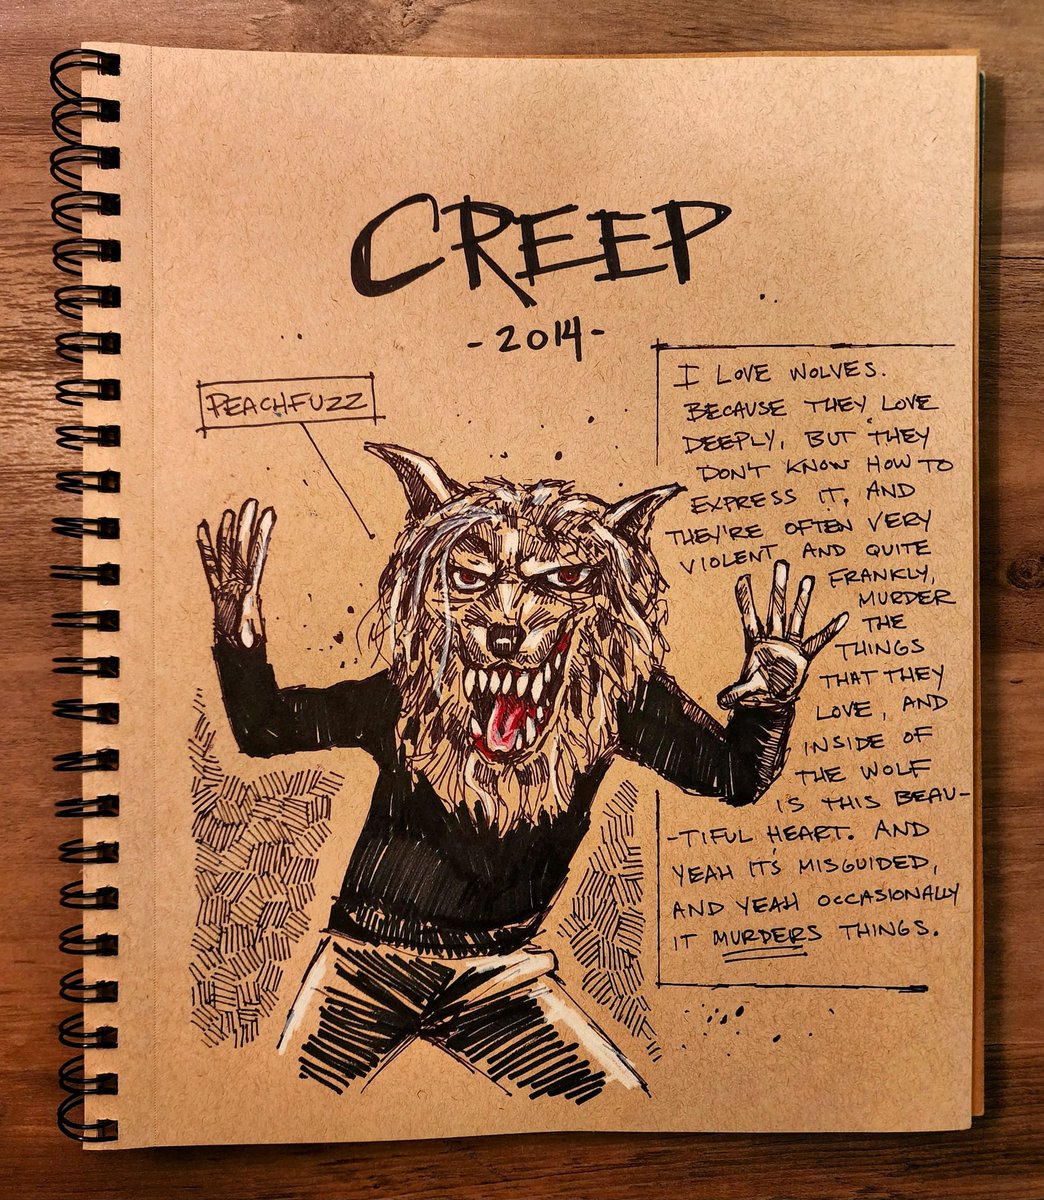 CREEP
-2014-
PEACHFUZZ
I LOVE WOLVES.
BECAUSE THEY LOVE
DEEPLY, BUT THEY
DON'T KNOW HOW TO
EXPRESS IT, AND
THEY'RE OFTEN VERY
VIOLENT AND QUITE
FRANKLY,
MURDER
THE
THINGS
THAT THEY
LOVE, AND
INSIDE OF
THE WOLF
IS THIS BEAU-
-TIFUL HEART. AND
YEAH IT'S MISGUIDED,
AND YEAH OCCASIONALLY
IT MURDERS THINGS.